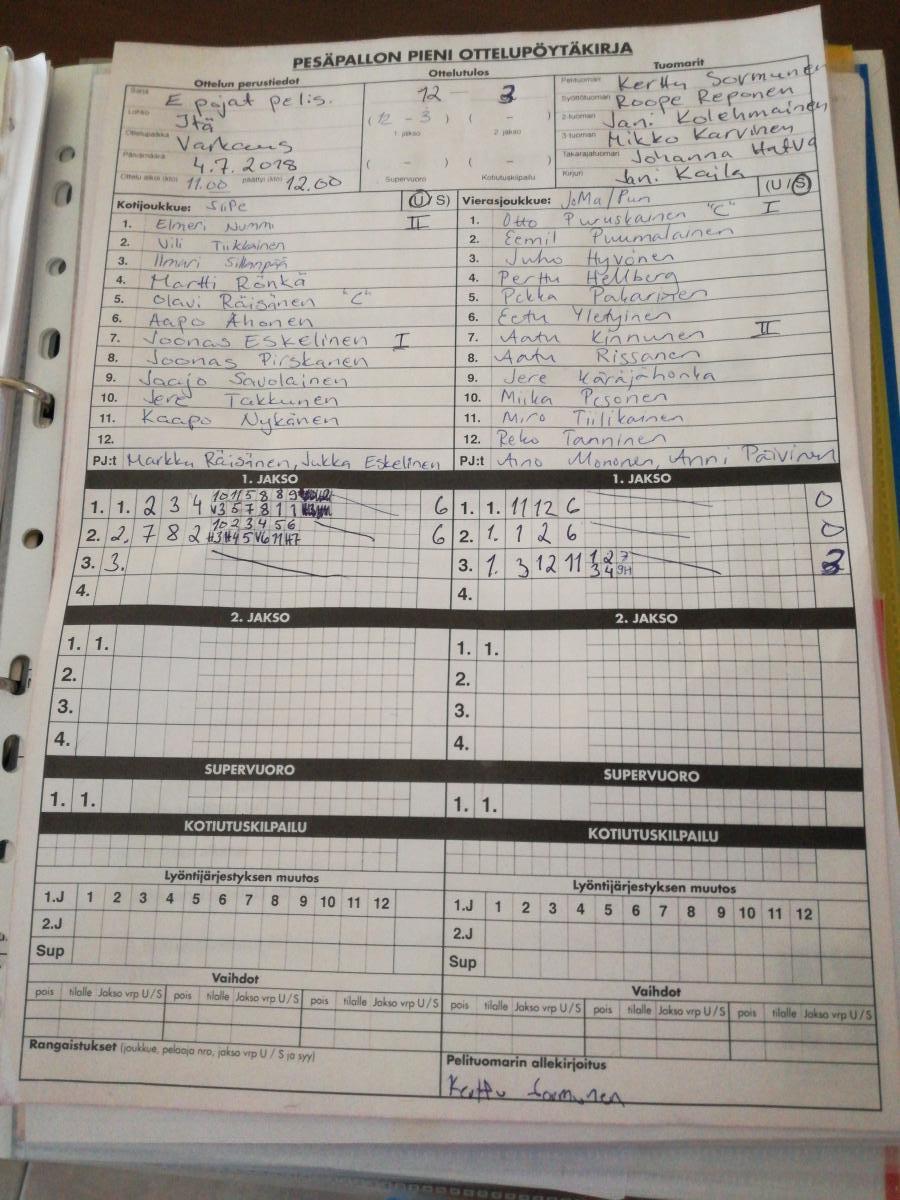 PESÄPALLON PIENI OTTELUPÖYTÄKIRJA
Ottelun perustiedot
Sarja E pojat pelis.
Lohko Itä
Ottelupaikka Varkaus
Päivämäärä 4.7.2018
Ottelu alkoi (klo) 11.00 päättyi (klo) 12.00
Ottelutulos
12 — 3
(12 - 3) ( - )
1. jakso 2. jakso
( - ) ( - )
Supervuoro Kotiutuskilpailu
Tuomarit
Pelituomari Kerttu Sormunen
Syöttötuomari Roope Reponen
2-tuomari Jani Kolehmainen
3-tuomari Mikko Karvinen
Takarajatuomari Johanna Hatva
Kirjuri Jani Kaila
Kotijoukkue: SiiPe (U/S)
1. Elmeri Nummi II
2. Vili Tiikkainen
3. Ilmari Sillanpää
4. Martti Rönkä
5. Olavi Räisänen "C"
6. Aapo Ahonen
7. Joonas Eskelinen I
8. Joonas Pirskanen
9. Jaajo Savolainen
10. Jere Takkunen
11. Kaapo Nykänen
12.
PJ:t Markku Räisänen, Jukka Eskelinen
Vierasjoukkue: JoMa/Pun (U/S)
1. Otto Puruskainen "C" I
2. Eemil Puumalainen
3. Juho Hyvönen
4. Perttu Hellberg
5. Pekka Pakarinen
6. Eetu Yletyinen
7. Aatu Kinnunen II
8. Aatu Rissanen
9. Jere Käräjähonka
10. Miika Pesonen
11. Miro Tiilikainen
12. Reko Tanninen
PJ:t Aino Mononen, Anni Päivinen
1. JAKSO
1. 1. 2 3 4 10 11 5 8 8 9 6
V3 5 7 8 1 1
2. 2. 7 8 2 10 2 3 4 5 6 6
3. 3.
4.
1. JAKSO
1. 1. 11 12 6 0
2. 1. 1 2 6 0
3. 1. 3 12 11 1 2 7 3
3 4 9H
4.
2. JAKSO
1. 1.
2.
3.
4.
2. JAKSO
1. 1.
2.
3.
4.
SUPERVUORO
1. 1.
SUPERVUORO
1. 1.
KOTIUTUSKILPAILU
KOTIUTUSKILPAILU
Lyöntijärjestyksen muutos
1.J 1 2 3 4 5 6 7 8 9 10 11 12
2.J
Sup
Lyöntijärjestyksen muutos
1.J 1 2 3 4 5 6 7 8 9 10 11 12
2.J
Sup
Vaihdot
pois tilalle Jakso vrp U/S pois tilalle Jakso vrp U/S pois tilalle Jakso vrp U/S
Vaihdot
pois tilalle Jakso vrp U/S pois tilalle Jakso vrp U/S pois tilalle Jakso vrp U/S
Rangaistukset (joukkue, pelaaja nro, jakso vrp U / S ja syy)
Pelituomarin allekirjoitus
Kerttu Sormunen